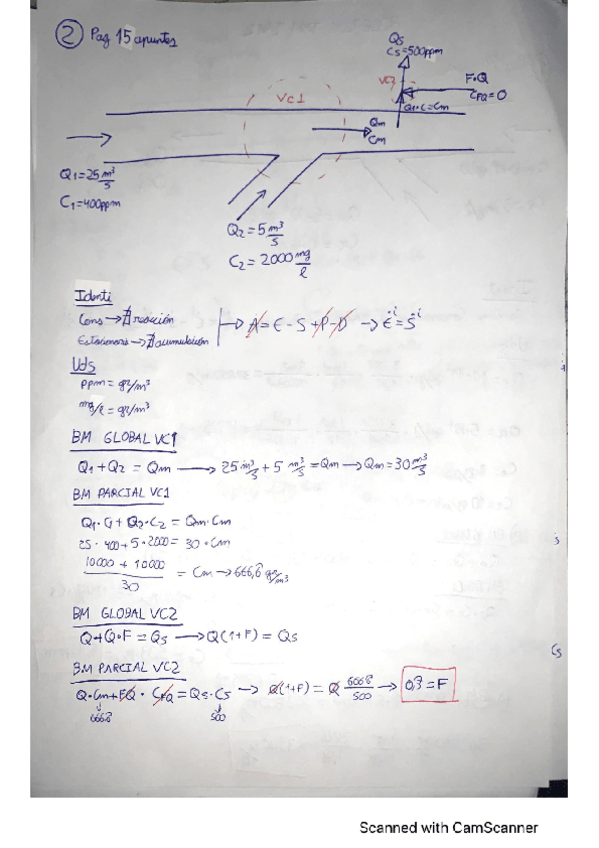 ② Pag 15 apuntes
Qs
Cs=500ppm
VC2
F·Q
C_FQ=0
Q, C=Cm
VC1
Qm
Cm
Q1=25 m³/s
C1=400ppm
Q2=5 m³/s
C2=2000 mg/l
Identi
Cons→∄ reacción
Estacionario→∄ acumulación
→ A=E-S+P-D → Ėⁱ=Ṡⁱ
Uds
ppm=gr/m³
mg/l=gr/m³
BM GLOBAL VC1
Q1+Q2=Qm → 25 m³/s + 5 m³/s = Qm → Qm=30 m³/s
BM PARCIAL VC1
Q1·C1+Q2·C2=Qm·Cm
25·400+5·2000=30·Cm
(10000+10000)/30 = Cm → 666,6 gr/m³
BM GLOBAL VC2
Q+Q·F=Qs → Q(1+F)=Qs
BM PARCIAL VC2
Q·Cm+FQ·C_FQ=Qs·Cs → Q(1+F)=Q 666,6/500 → 0,3=F
666,6
500
Cs
Scanned with CamScanner